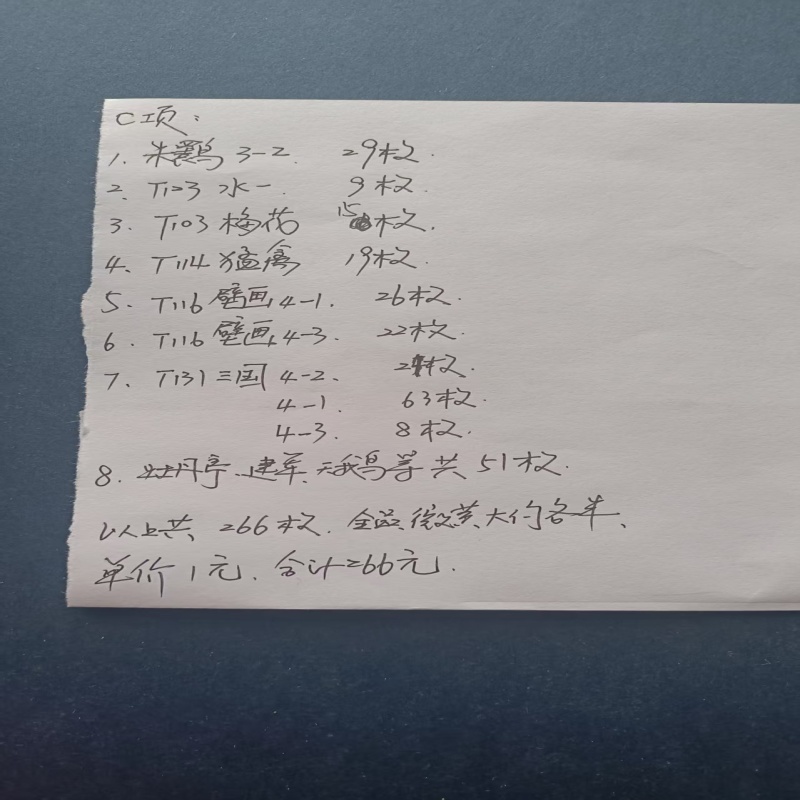 C项:
1. 朱鹮 3-2. 29枚.
2. T123 水一. 9枚.
3. T103 梅花 15枚.
4. T114 猛禽 19枚.
5. T116 壁画 4-1. 26枚.
6. T116 壁画 4-3. 22枚.
7. T131 三国 4-2. 24枚.
4-1. 63枚.
4-3. 8枚.
8. 牡丹亭、建军、天鹅等共51枚.
以上共266枚. 全品、微黄大约各半、
单价1元、合计266元.